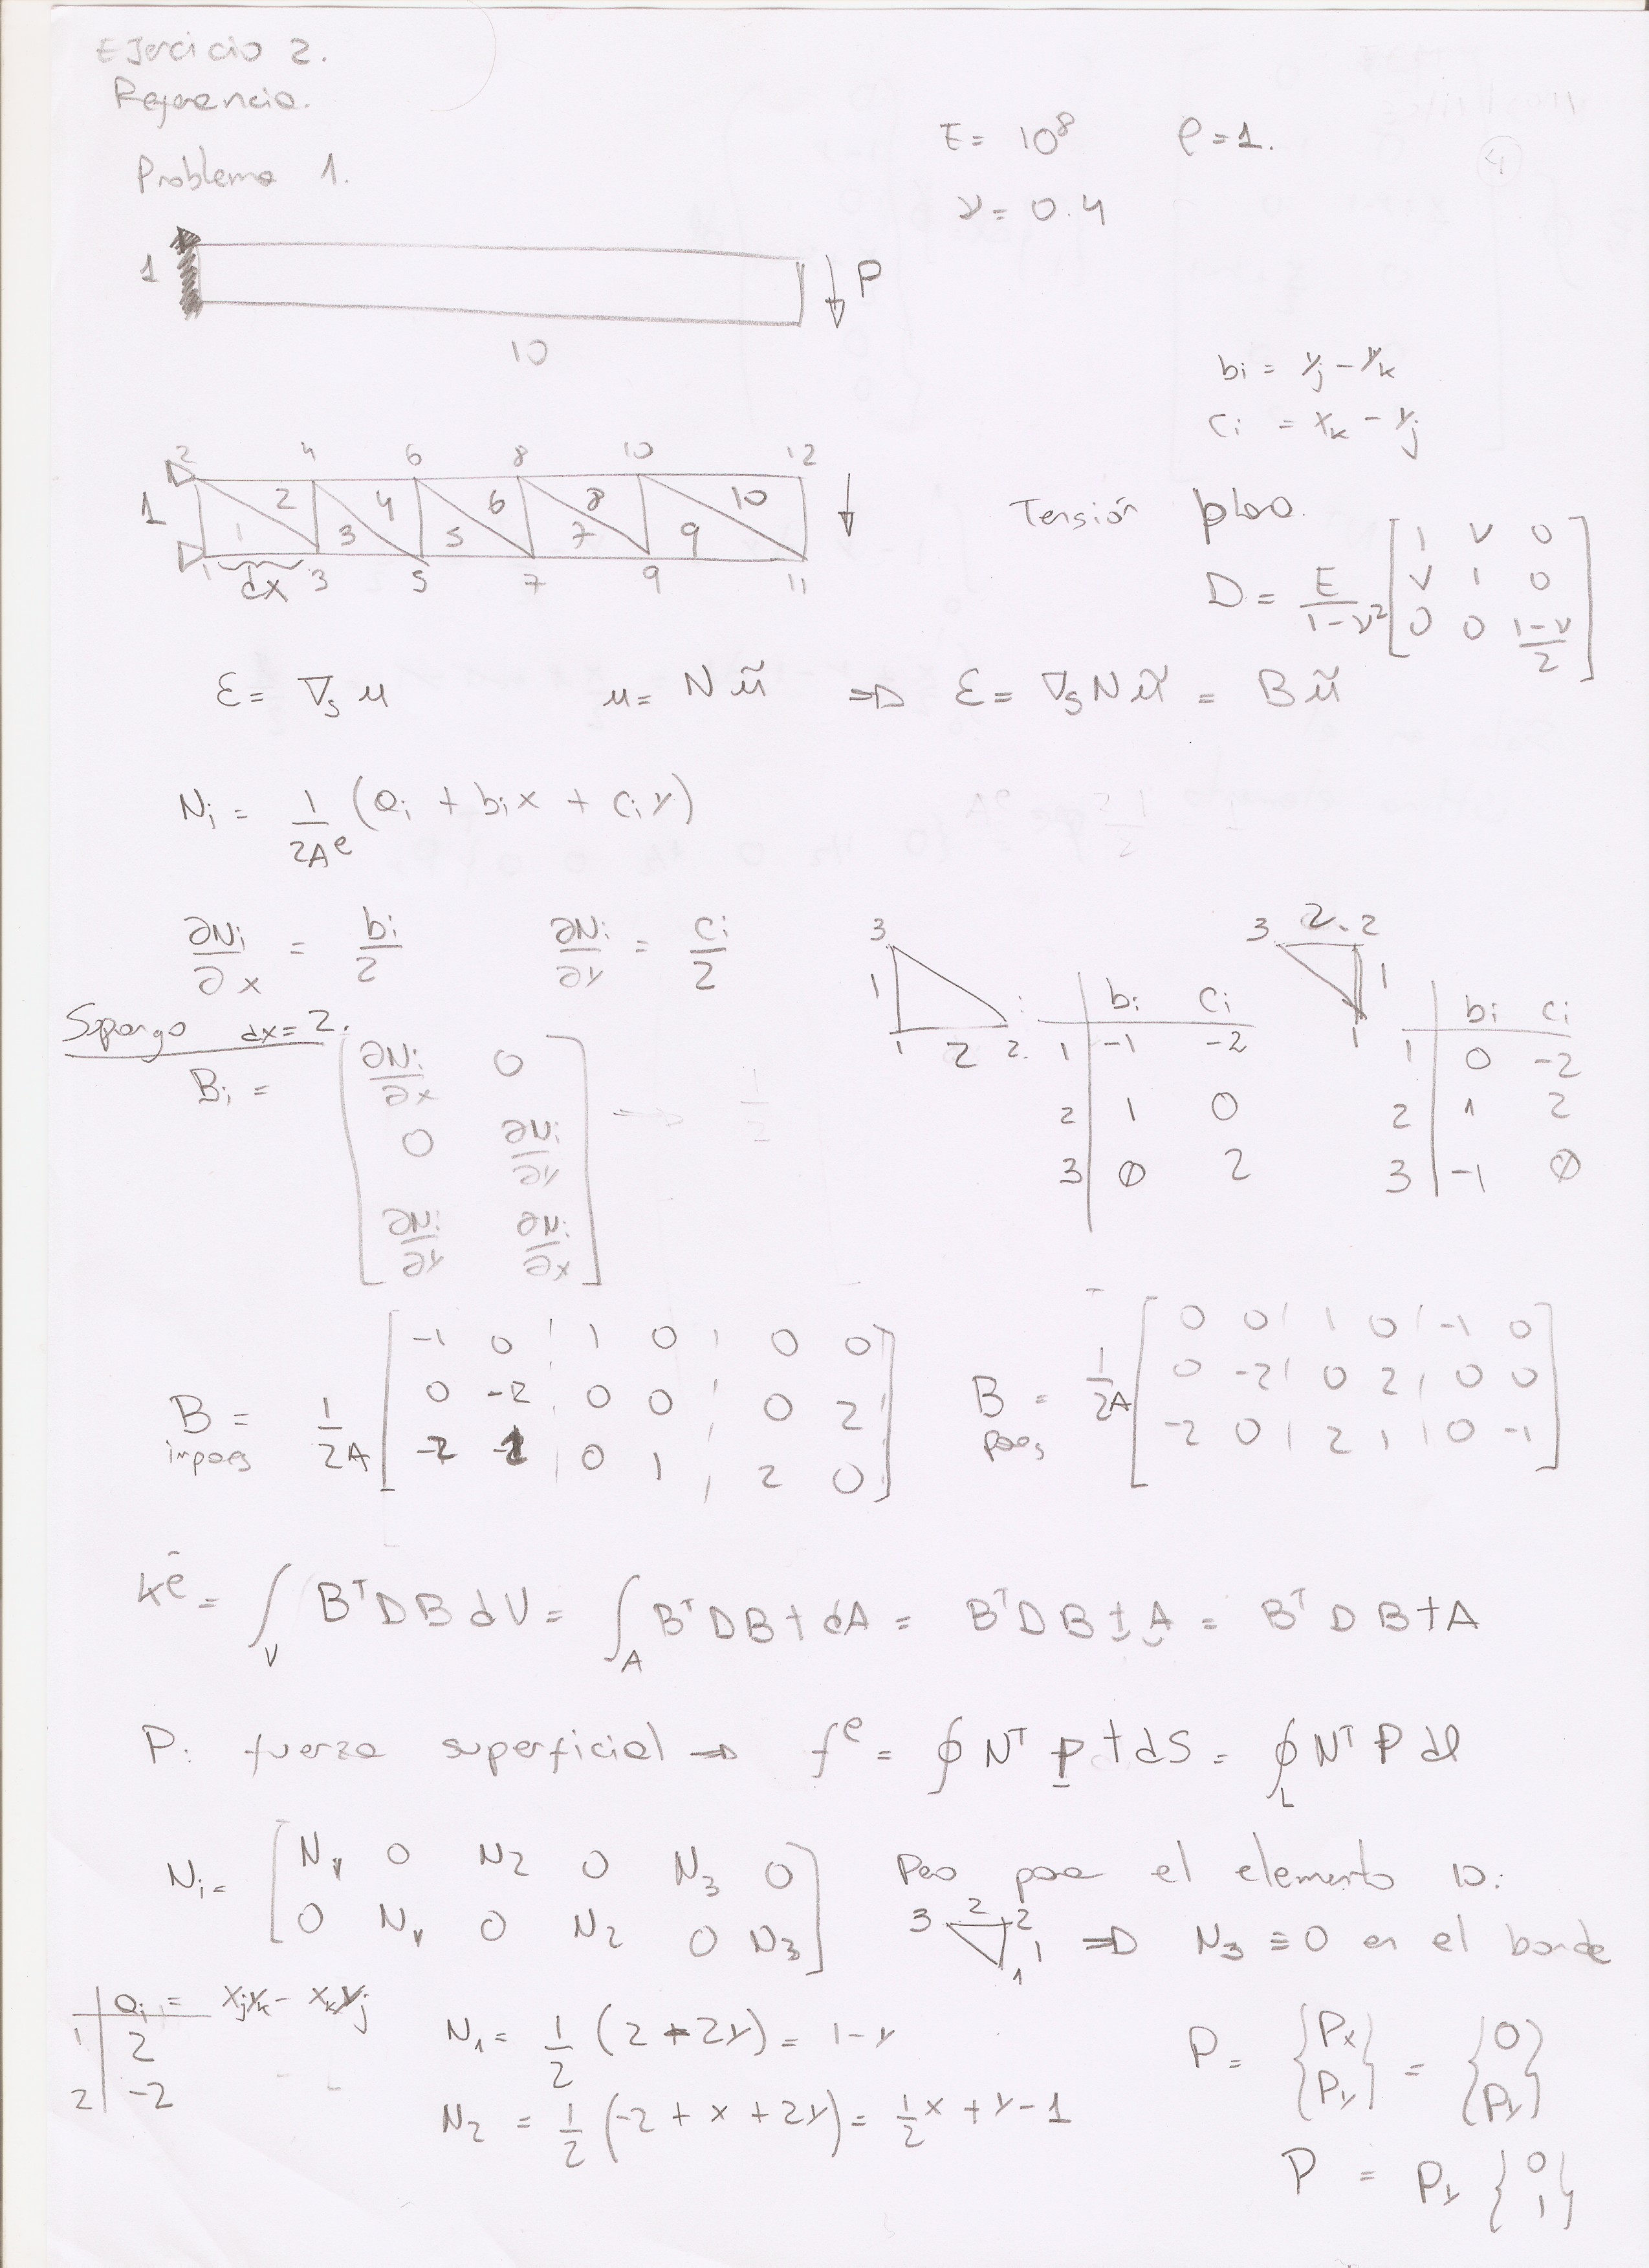 Ejercicio 2.
Referencia.
Problema 1.
E = 10⁸ ρ = 1.
ν = 0.4
4
1
P
10
bi = yj - yk
ci = xk - xj
2 4 6 8 10 12
1
1 2 3 4 5 6 7 8 9 10
1 dx 3 5 7 9 11
Tensión plana.
D = E/(1-ν²) [1 ν 0; ν 1 0; 0 0 (1-ν)/2]
ε = ∇s u u = N ũ ⇒ ε = ∇s N ũ = B ũ
Ni = 1/(2Aᵉ) (ai + bi x + ci y)
∂Ni/∂x = bi/2 ∂Ni/∂y = ci/2
Supongo dx = 2.
Bi = [∂Ni/∂x 0; 0 ∂Ni/∂y; ∂Ni/∂y ∂Ni/∂x]
3
1
1 2 2.
i bi ci
1 -1 -2
2 1 0
3 0 2
3 2 2
1
1
bi ci
1 0 -2
2 1 2
3 -1 0
B impares = 1/(2A) [-1 0 1 0 0 0; 0 -2 0 0 0 2; -2 -1 0 1 2 0]
B pares = 1/(2A) [0 0 1 0 -1 0; 0 -2 0 2 0 0; -2 0 2 1 0 -1]
Kᵉ = ∫V BᵀDB dV = ∫A BᵀDB t dA = BᵀDB t A = BᵀDB t A
P: fuerza superficial ⇒ fᵉ = ∮ Nᵀ p t dS = ∮L Nᵀ P dl
Ni = [N1 0 N2 0 N3 0; 0 N1 0 N2 0 N3] Pero para el elemento 10:
3 2 2 1 1 ⇒ N3 ≡ 0 en el borde
ai = xj yk - xk yj
1 2
2 -2
N1 = 1/2 (2 - 2y) = 1 - y
N2 = 1/2 (-2 + x + 2y) = 1/2 x + y - 1
P = {Px; Py} = {0; Py}
P = Py {0; 1}